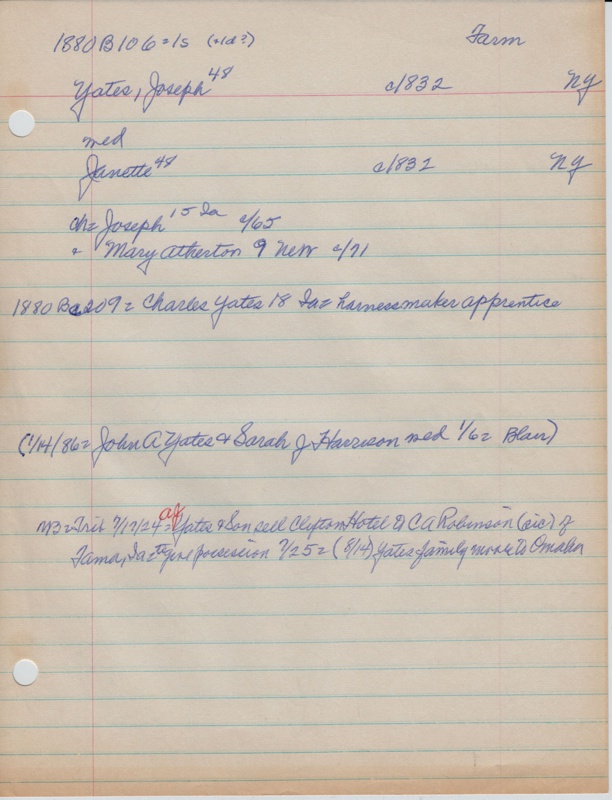 1880 B 106 = 1s (+1d?) Farm
Yates, Joseph 48 c/1832 NY
med
Janette 48 c/1832 NY
ch = Joseph 15 Ia c/65
+ Mary Atherton 9 New c/71
1880 Bca209 = Charles Yates 18 Ia = harnessmaker apprentice
(1/14/86 = John A Yates & Sarah J Harrison med 1/6 = Blair)
NB = Trib 7/17/24 = Yates & Son sell Clifton Hotel to C A Robinson (sic) of
Tama, Ia = to give possession 7/25 = (8/14) Yates family move to Omaha